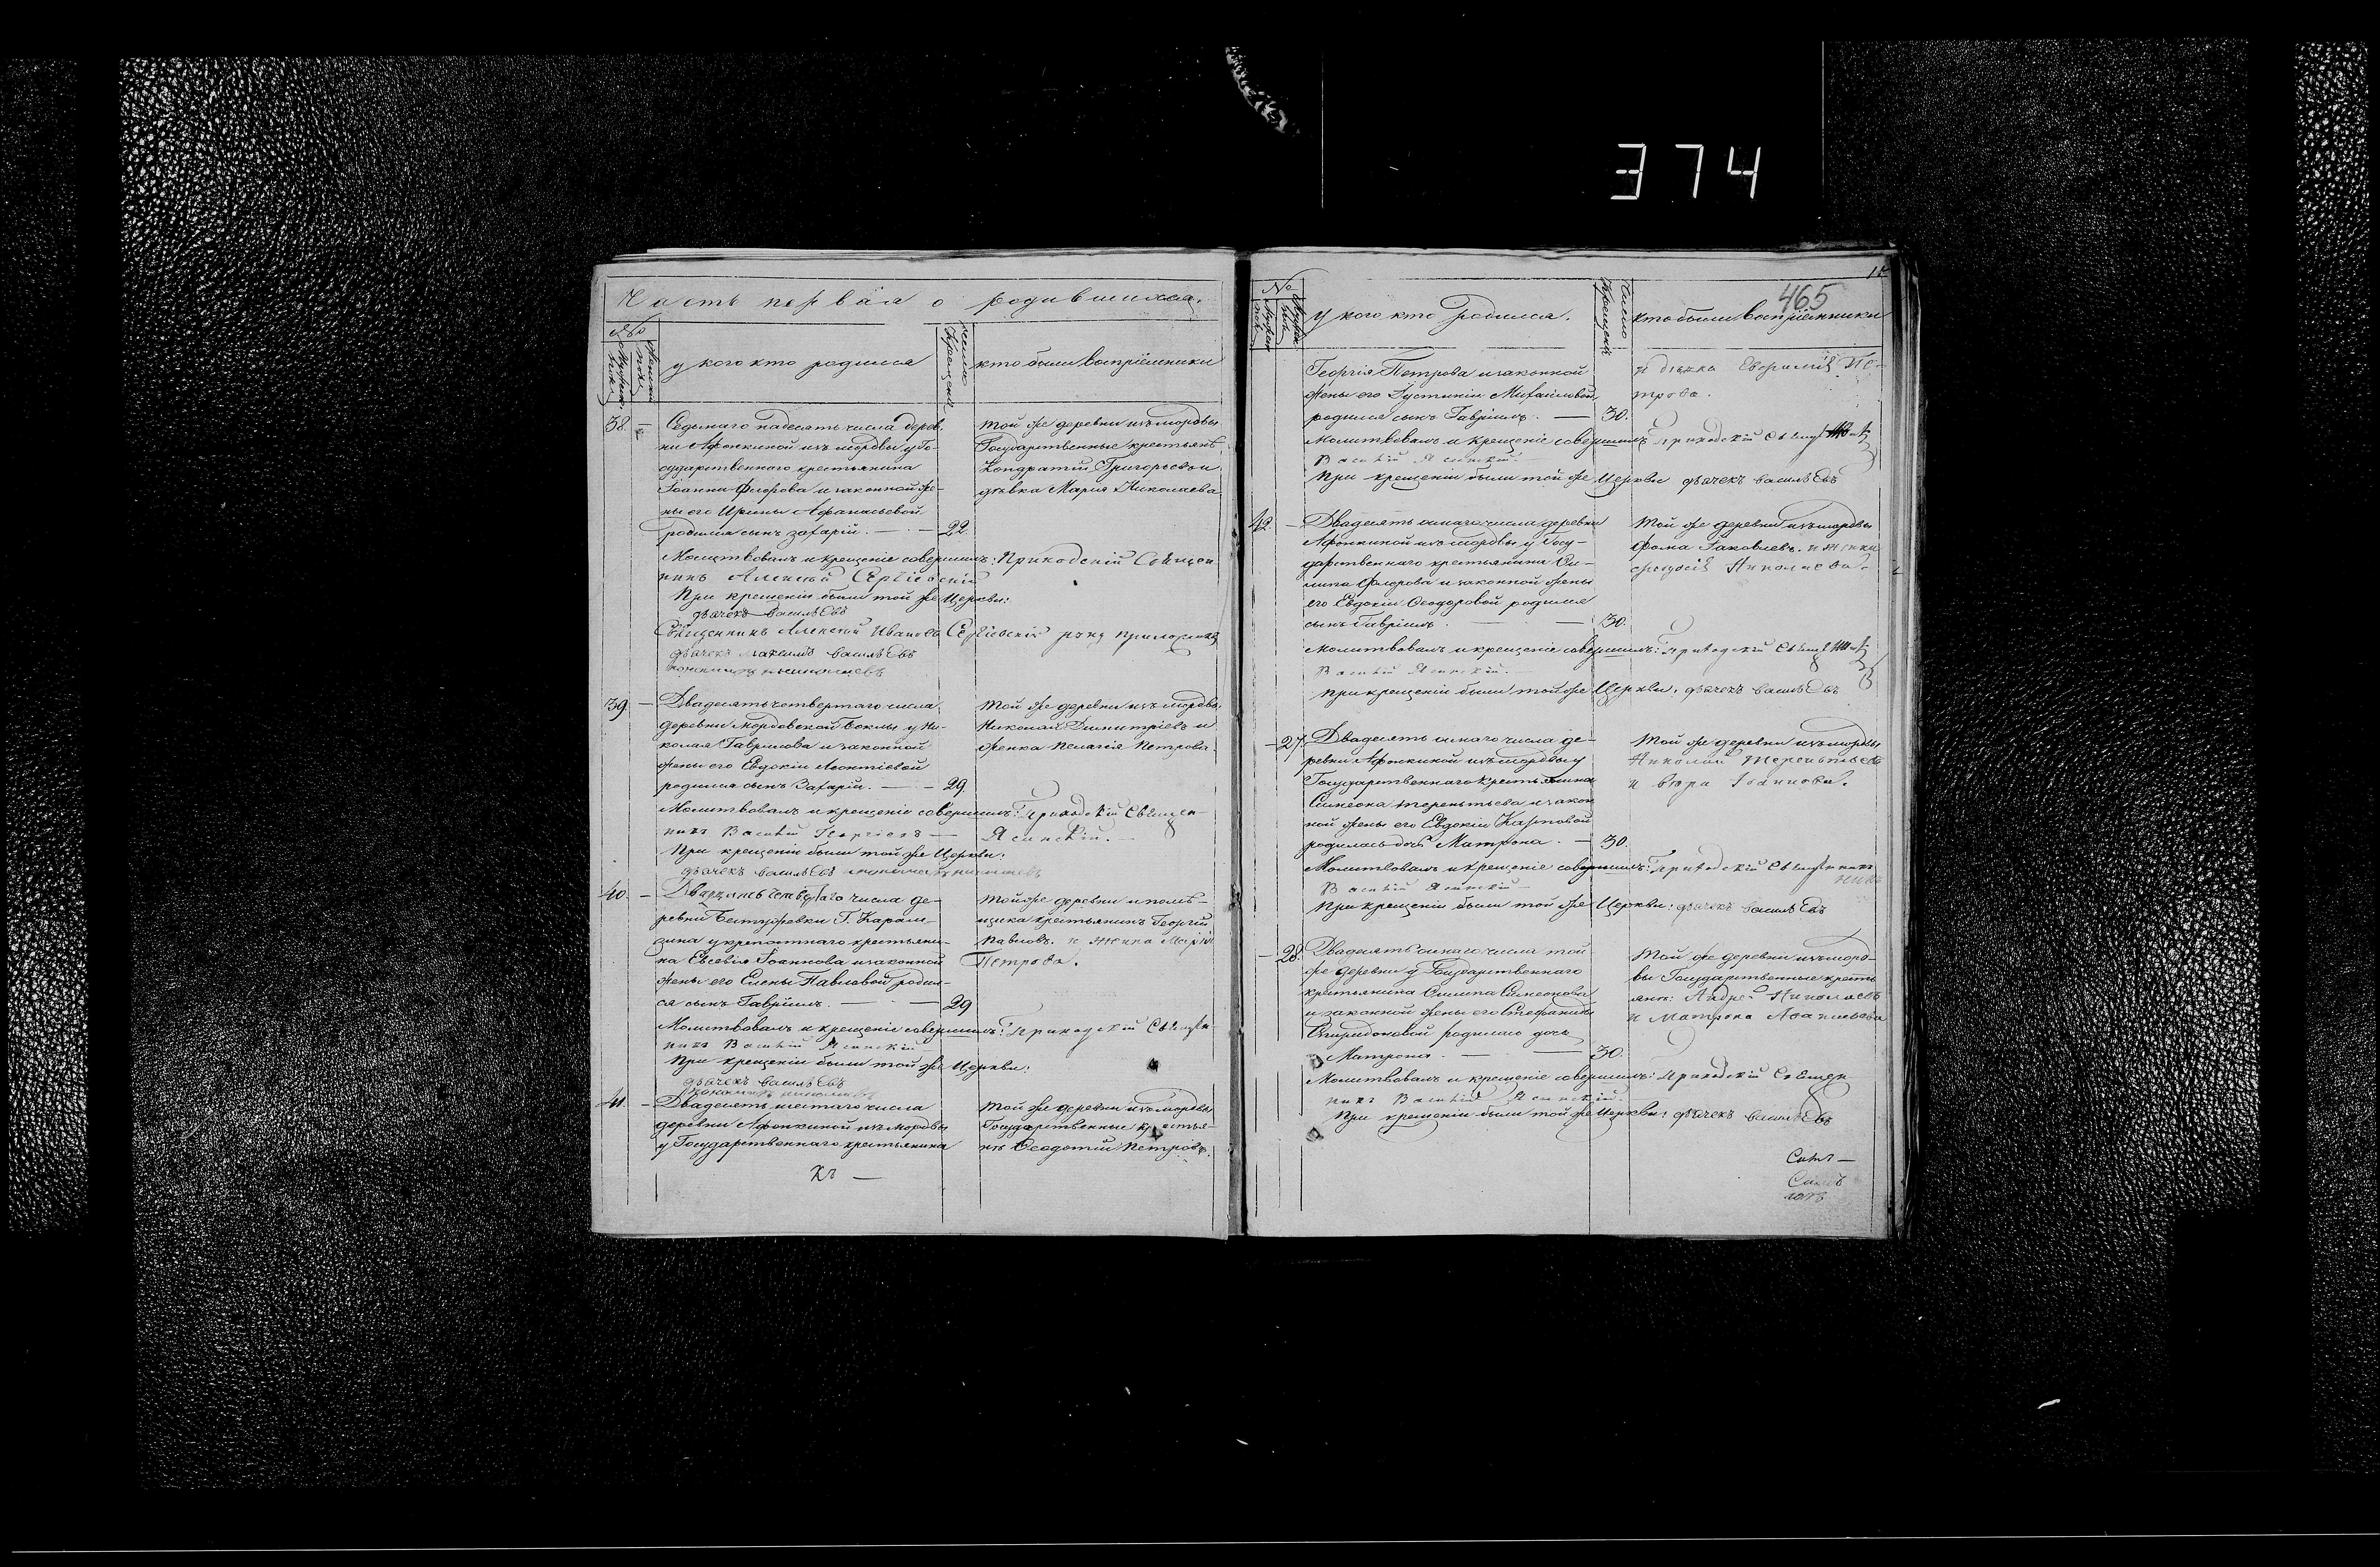 374
Часть первая о родившихся.
№
у кого кто родился
число Крещенія
кто были воспріемники
38. Седьмаго надесять числа дерев-
ни Афонкиной изъ мордвы у Го-
сударственнаго крестьянина
Іоанна Флорова и законной же-
ны его Ирины Афанасьевой
родился сынъ Захарій. — 22.
той же деревни изъ мордвы
Государственные крестьяне
Кондратій Григорьевъ и
дѣвка Марія Николаева
Молитвовалъ и крещеніе совершилъ: Приходскій Священ
никъ Алексѣй Сергіевскій
При крещеніи были той же Церкви:
дьячекъ Васильевъ
Священникъ Алексѣй Ивановъ Сергіевскій руку приложилъ
дьячекъ Васильевъ
39. — Двадесять четвертаго числа
деревни Мордовской Боклы у Ни-
колая Гаврилова и законной
жены его Евдокіи Леонтіевой
родился сынъ Захарій. — 29.
той же деревни изъ мордвы
Николай Димитріевъ и
женка Пелагія Петрова.
Молитвовалъ и крещеніе совершилъ: Приходскій Священ-
никъ Василій Георгіевъ — Ясинскій.
При крещеніи были той же Церкви:
дьячекъ Васильевъ
40. — Двадесять четвертаго числа де-
ревни Бестужевки Г. Карам-
зина у крепостнаго крестьяни-
на Евсевія Іоаннова и законной
жены его Елены Павловой родил-
ся сынъ Гавріилъ. — 29
Той же деревни и помѣ-
щика крестьянинъ Георгій
Павловъ. и женка Марія
Петрова.
Молитвовалъ и крещеніе совершилъ: Приходскій Священ
никъ Василій Ясинскій
При крещеніи были той же Церкви:
дьячекъ Васильевъ
41. — Двадесять шестаго числа
деревни Афонкиной изъ мордвы
у Государственнаго крестьянина
Той же деревни изъ мордвы
Государственные крестья-
нъ Ѳеодотій Петровъ.
465
№
у кого кто родился.
число Крещенія
кто были воспріемники
Георгія Петрова и законной
жены его Іустиніи Михайловой
родился сынъ Гавріилъ. — 30.
и дѣвка Евфимія Пе-
трова.
Молитвовалъ и крещеніе совершилъ: Приходскій
Василій Ясинскій.
При крещеніи были той же Церкви дьячекъ Васильевъ
42. — Двадесять осмаго числа деревни
Афонкиной изъ мордвы у Госу-
дарственнаго крестьянина Фи-
липа Флорова и законной жены
его Евдокіи Ѳеодоровой родился
сынъ Гавріилъ. — 30.
Той же деревни изъ мордвы
Фома Іаковлевъ. и женка
Николаева.
Молитвовалъ и крещеніе совершилъ: Приходскій
Василій Ясинскій.
При крещеніи были той же Церкви: дьячекъ Васильевъ
— 27. Двадесять осмаго числа де-
ревни Афонкиной изъ мордвы у
Государственнаго Крестьянина
Симеона Терентьева и закон
ной жены его Евдокіи Карповой
родилась дочь Матрона. — 30.
Той же деревни изъ мордвы
Николай Терентьевъ
и Вѣра Іоаннова.
Молитвовалъ и крещеніе совершилъ: Приходскій Священникъ
Василій Ясинскій
При крещеніи были той же Церкви: дьячекъ Васильевъ
— 28. Двадесять осмаго числа той
же деревни у Государственнаго
крестьянина Филипа Симеонова
и законной жены его Стефаниды
Спиридоновой родилась дочь
Матрона. — 30.
Той же деревни изъ морд-
вы Государственные кресть
янъ: Андрей Николаевъ
и Матрона
Молитвовалъ и крещеніе совершилъ: Приходскій Священ
никъ Василій Ясинскій.
При крещеніи были той же Церкви: дьячекъ Васильевъ